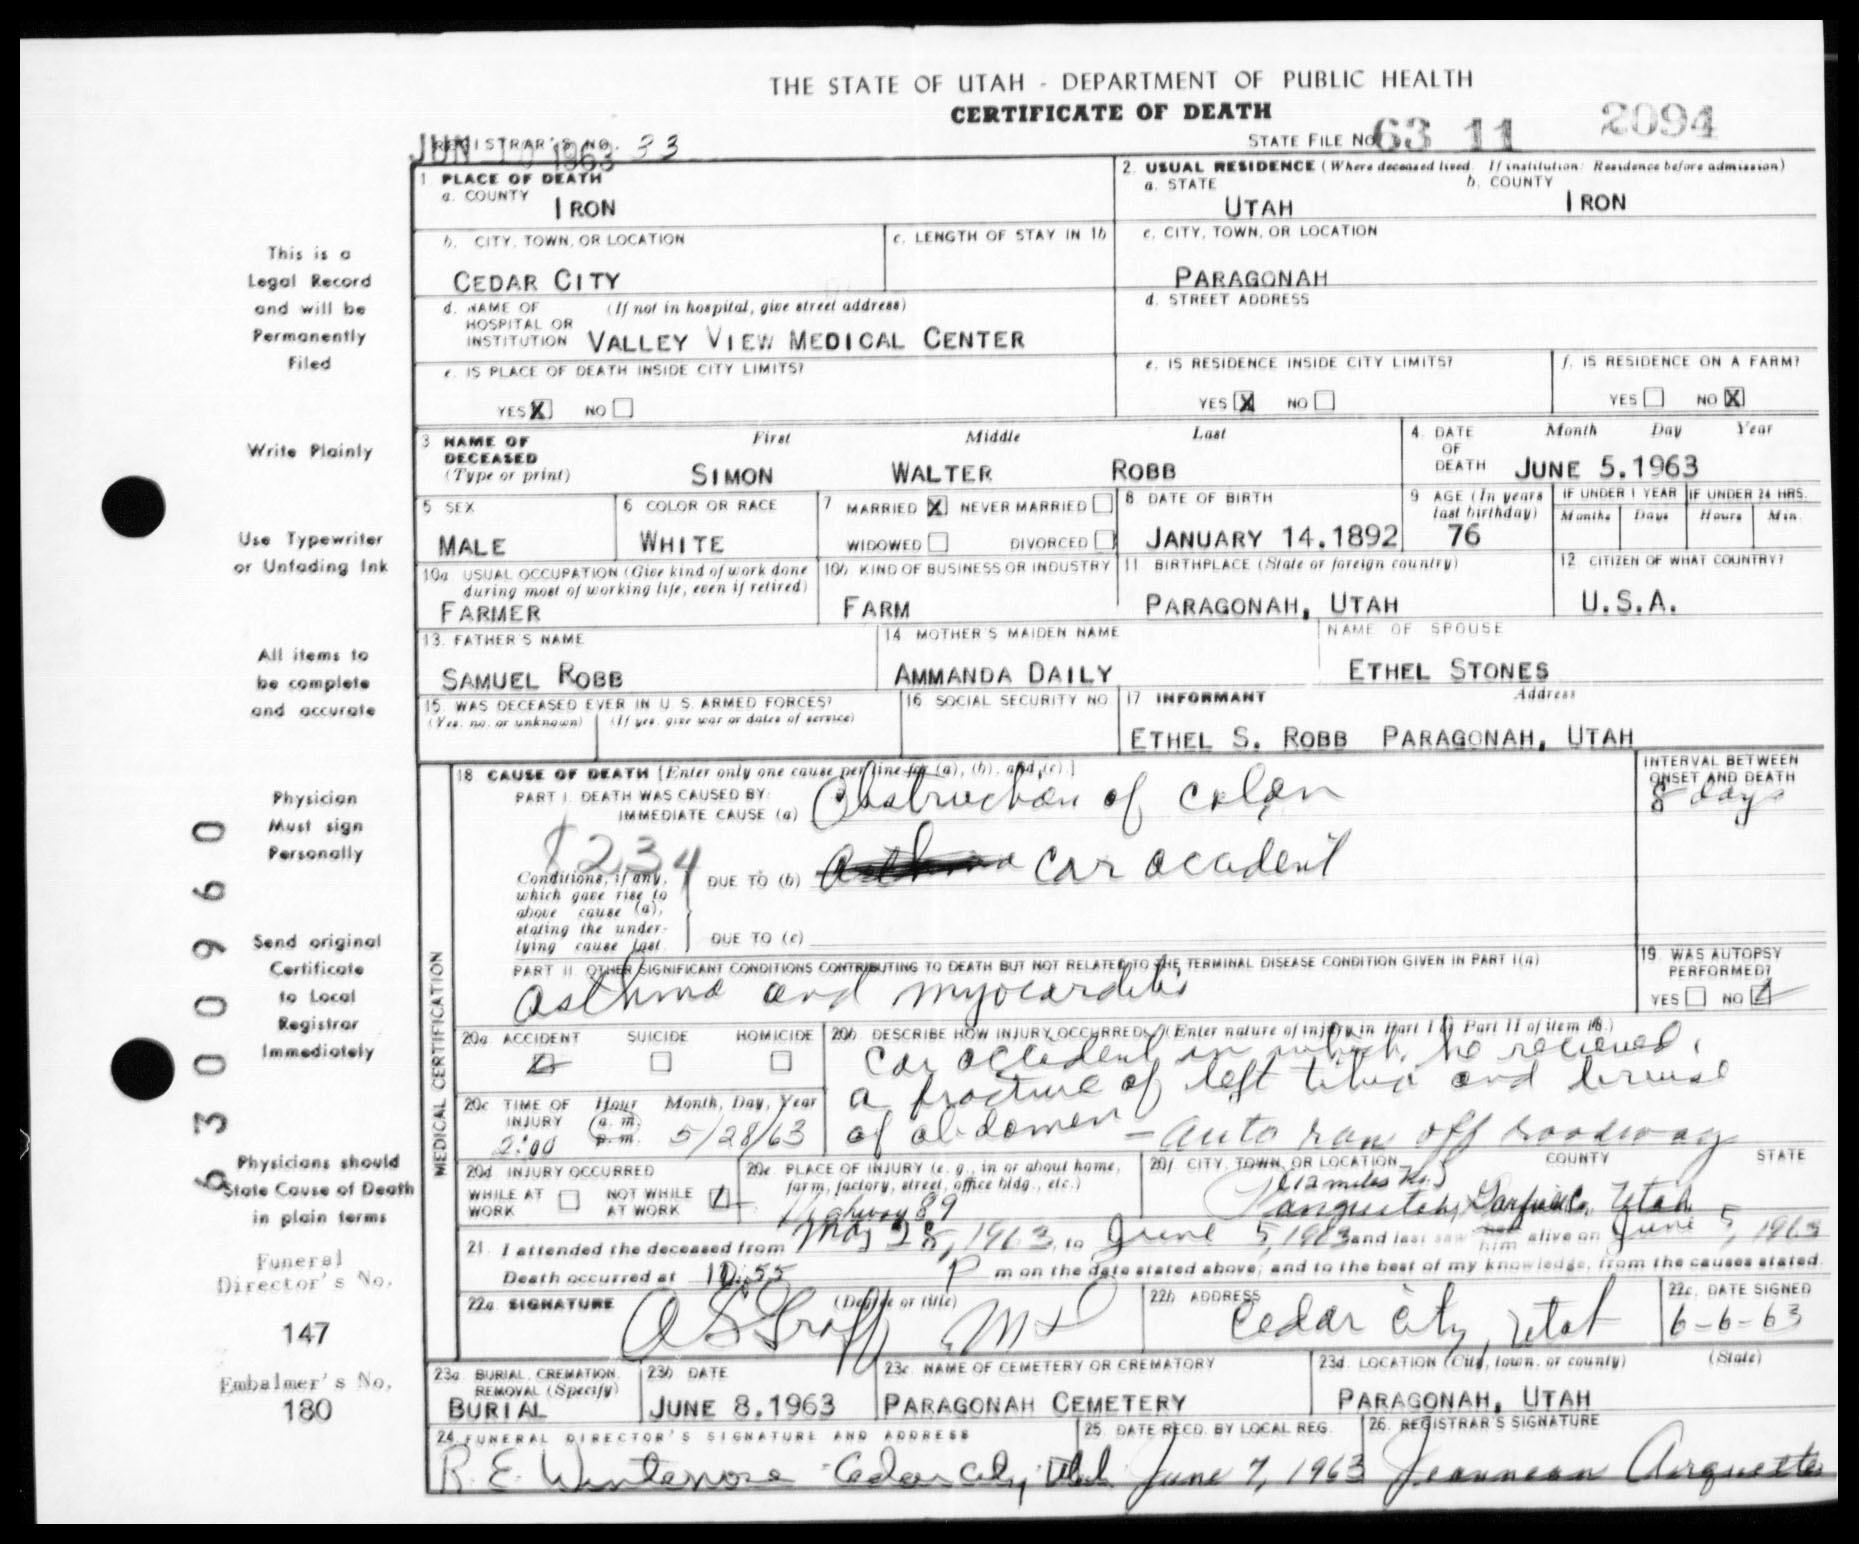 THE STATE OF UTAH - DEPARTMENT OF PUBLIC HEALTH
CERTIFICATE OF DEATH
REGISTRAR'S NO. 33
JUN 1963
STATE FILE NO 63 11 2094
1 PLACE OF DEATH
a. COUNTY
IRON
2. USUAL RESIDENCE (Where deceased lived. If institution: Residence before admission)
a. STATE b. COUNTY
UTAH IRON
b. CITY, TOWN, OR LOCATION
CEDAR CITY
c. LENGTH OF STAY IN 1b
c. CITY, TOWN, OR LOCATION
PARAGONAH
d. NAME OF HOSPITAL OR INSTITUTION (If not in hospital, give street address)
VALLEY VIEW MEDICAL CENTER
d. STREET ADDRESS
e. IS PLACE OF DEATH INSIDE CITY LIMITS?
YES X NO
e. IS RESIDENCE INSIDE CITY LIMITS?
YES X NO
f. IS RESIDENCE ON A FARM?
YES NO X
3 NAME OF DECEASED (Type or print)
First Middle Last
SIMON WALTER ROBB
4. DATE OF DEATH Month Day Year
JUNE 5.1963
5 SEX
MALE
6 COLOR OR RACE
WHITE
7 MARRIED X NEVER MARRIED
WIDOWED DIVORCED
8 DATE OF BIRTH
JANUARY 14.1892
9 AGE (In years last birthday)
76
IF UNDER 1 YEAR
Months Days
IF UNDER 24 HRS.
Hours Min.
10a USUAL OCCUPATION (Give kind of work done during most of working life, even if retired)
FARMER
10b KIND OF BUSINESS OR INDUSTRY
FARM
11 BIRTHPLACE (State or foreign country)
PARAGONAH, UTAH
12 CITIZEN OF WHAT COUNTRY?
U.S.A.
13. FATHER'S NAME
SAMUEL ROBB
14 MOTHER'S MAIDEN NAME
AMMANDA DAILY
NAME OF SPOUSE
ETHEL STONES
15. WAS DECEASED EVER IN U.S. ARMED FORCES?
(Yes, no, or unknown) (If yes, give war or dates of service)
16 SOCIAL SECURITY NO.
17 INFORMANT Address
ETHEL S. ROBB PARAGONAH, UTAH
18 CAUSE OF DEATH [Enter only one cause per line for (a), (b), and (c).]
PART I. DEATH WAS CAUSED BY:
IMMEDIATE CAUSE (a) Obstruction of colon
INTERVAL BETWEEN ONSET AND DEATH
8 days
1234
Conditions, if any, which gave rise to above cause (a), stating the underlying cause last.
DUE TO (b) Asthma car accident
DUE TO (c)
PART II. OTHER SIGNIFICANT CONDITIONS CONTRIBUTING TO DEATH BUT NOT RELATED TO THE TERMINAL DISEASE CONDITION GIVEN IN PART I(a)
asthma and myocarditis
19 WAS AUTOPSY PERFORMED?
YES NO
20a ACCIDENT SUICIDE HOMICIDE
20b DESCRIBE HOW INJURY OCCURRED. (Enter nature of injury in Part I or Part II of item 18.)
car accident in which he recieved
a fracture of left tibia and bruise
of abdomen - auto ran off roadway
20c TIME OF INJURY Hour Month, Day, Year
2:00 a. m. p. m. 5/28/63
20d INJURY OCCURRED
WHILE AT WORK NOT WHILE AT WORK
20e. PLACE OF INJURY (e. g., in or about home, farm, factory, street, office bldg., etc.)
Highway 89
20f. CITY, TOWN, OR LOCATION COUNTY STATE
(12 miles No.)
Panguitch, Garfield Co, Utah
21. I attended the deceased from May 28, 1963, to June 5, 1963 and last saw him alive on June 5, 1963
Death occurred at 10:55 P m on the date stated above; and to the best of my knowledge, from the causes stated.
22a SIGNATURE (Degree or title)
A S Graff MD
22b ADDRESS
Cedar City, Utah
22c. DATE SIGNED
6-6-63
23a BURIAL, CREMATION, REMOVAL (Specify)
BURIAL
23b DATE
JUNE 8.1963
23c NAME OF CEMETERY OR CREMATORY
PARAGONAH CEMETERY
23d LOCATION (City, town, or county) (State)
PARAGONAH, UTAH
24 FUNERAL DIRECTOR'S SIGNATURE AND ADDRESS
R. E. Cedar City, Utah
25. DATE RECD. BY LOCAL REG.
June 7, 1963
26. REGISTRAR'S SIGNATURE
MEDICAL CERTIFICATION
This is a
Legal Record
and will be
Permanently
Filed
Write Plainly
Use Typewriter
or Unfading Ink
All items to
be complete
and accurate
Physician
Must sign
Personally
Send original
Certificate
to Local
Registrar
Immediately
Physicians should
State Cause of Death
in plain terms
Funeral
Director's No.
147
Embalmer's No.
180
6300960